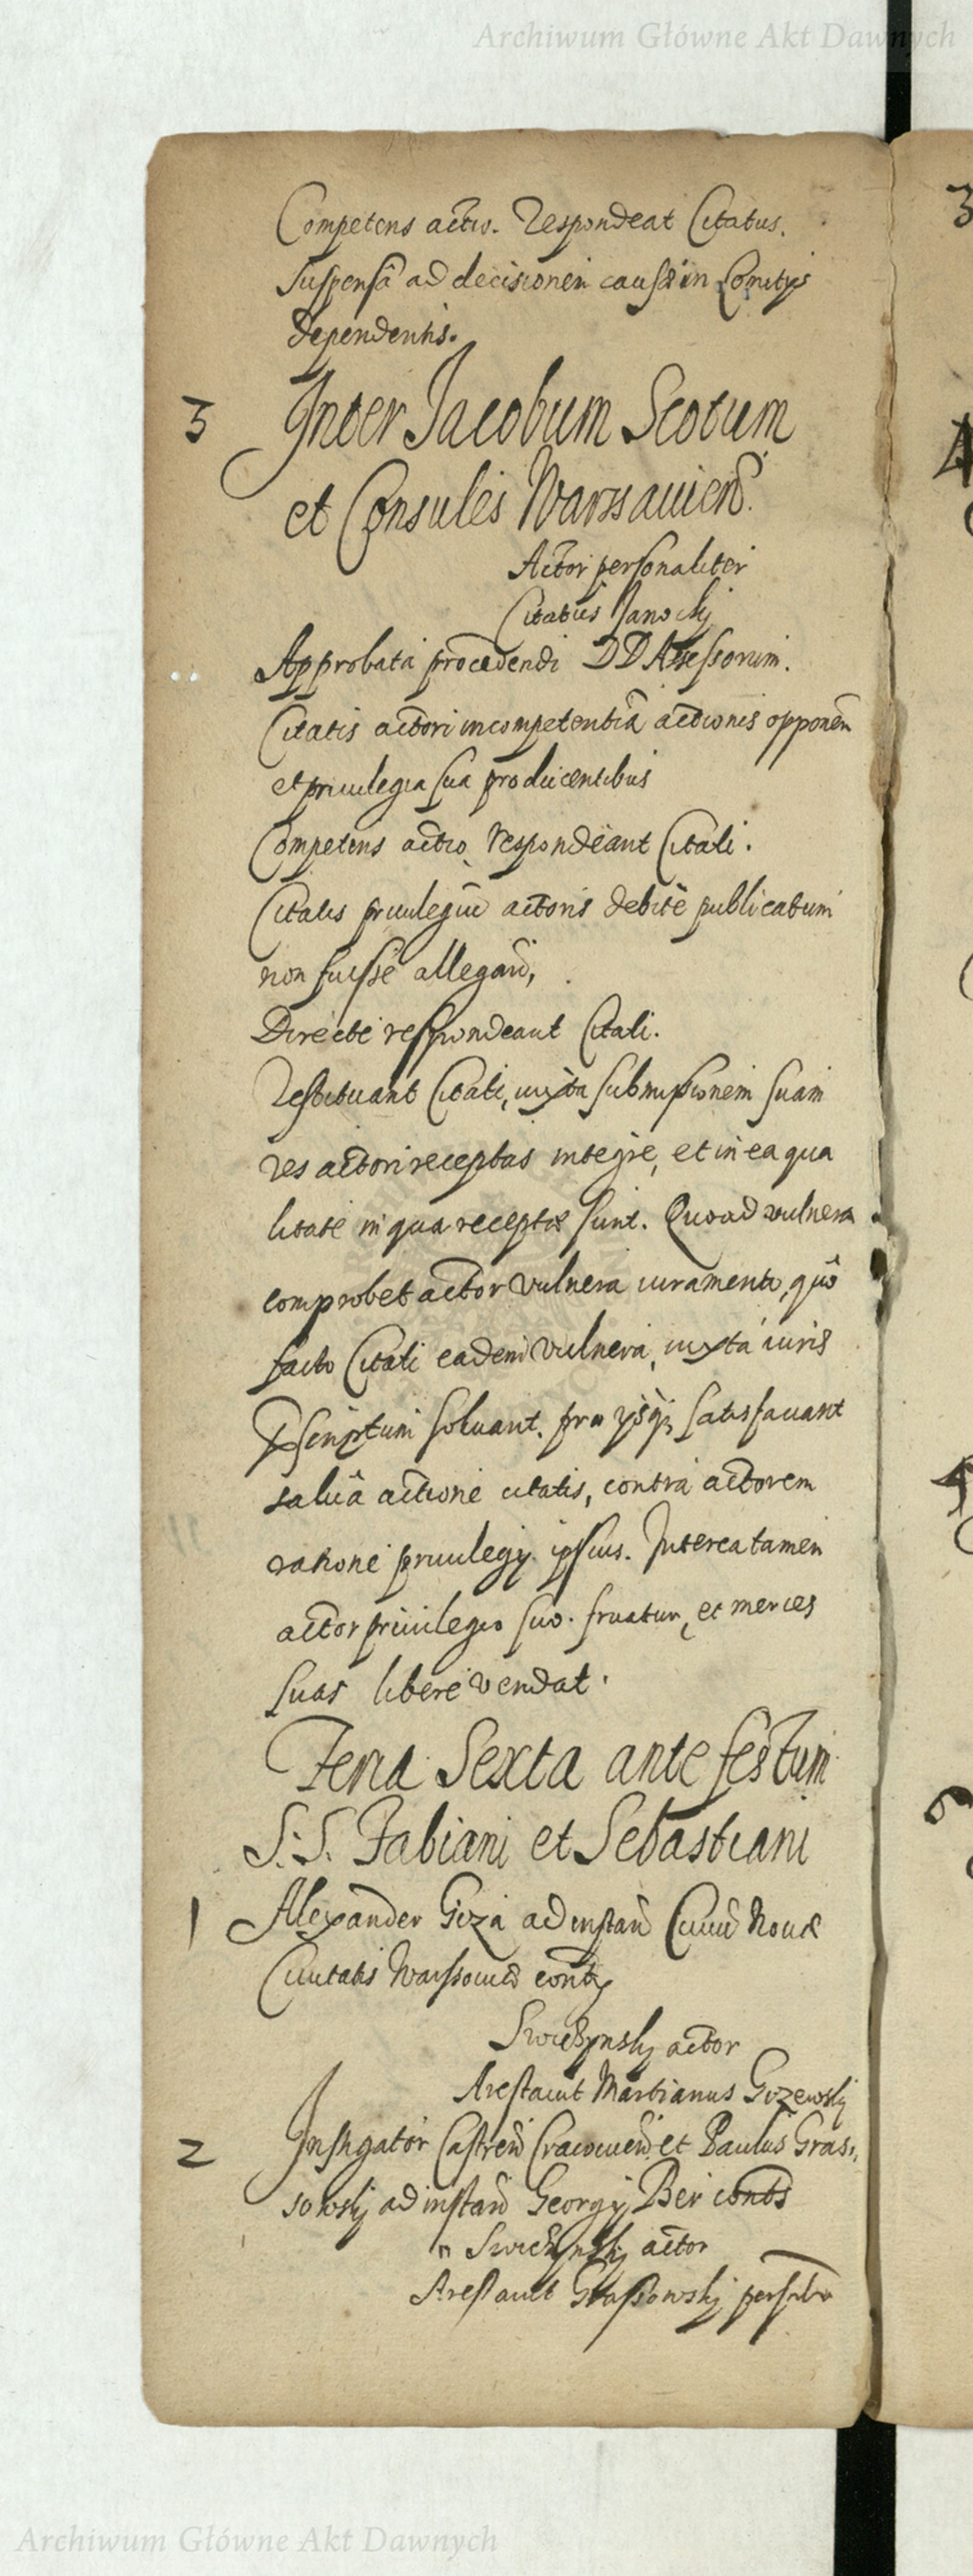 Archiwum Główne Akt Dawnych
Competens actio. Respondeat Citatus.
Suspensâ ad decisionem causæ in Comitijs
dependentis.
3 Inter Jacobum Scotum
et Consules Warssauien̄.
Actor personaliter
Citatus Janoskj
Approbata procedendi DD Assessorum.
Citatis actori incompetentiā actionis opponen̄
et priuilegia sua producentibus
Competens actio, respondeant Citati.
Citatis priuilegiū actoris debite publicatum
non fuisse allegan̄,
Directe respondeant Citati.
Restituant Citati, iuxta submissionem suam
res actori receptas integre, et in ea qua
litate in qua receptæ sunt. Quoad vulnera
comprobet actor vulnera iuramento, quô
facto Citati eadem vulnera, iuxta iuris
p̄scriptum soluant, pro ijsq; satisfaciant
saluâ actione citatis, contra actorem
ratione priuilegij ipsius. Interea tamen
actor priuilegio suo fruatur, et merces
suas libere vendat.
Feria Sexta ante festum
S.S. Fabiani et Sebastiani
1 Alexander Giza ad instan̄ Ciuiū Nouæ
Ciuitatis Warssouien̄
actor
Arestauit Martianus Gizewskj
2 Instigator Castren̄ Cracouien̄ et Paulus Gras,
sowskj ad instan̄ Georgij Ber
actor
Arestauit Grassowskj
3
4
5
6
Archiwum Główne Akt Dawnych